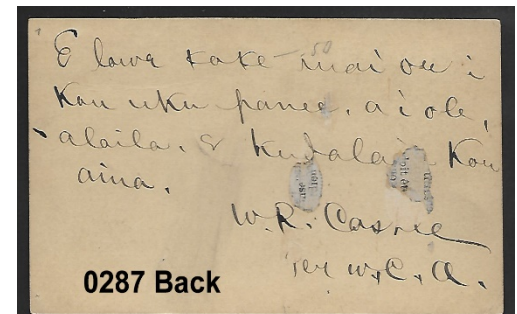 50
E lawe koke mai oe i
Kou uku panee, a i ole,
alaila, e Kudalaia Kou
aina.
W. R. Castle
per W. C. A.
0287 Back